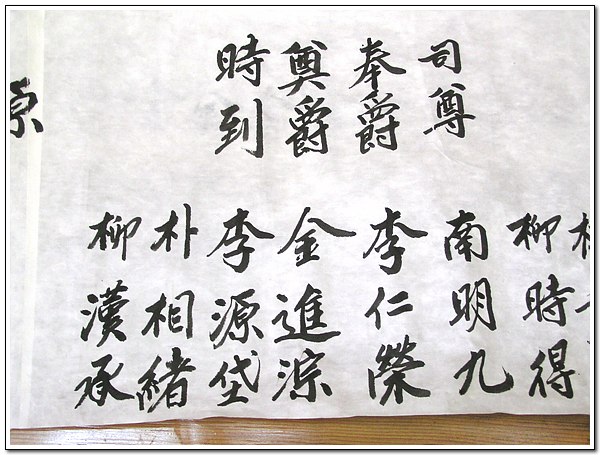 柳時得
司尊 南明九
奉爵 李仁榮
奠爵 金進淙
時到 李源垈
朴相緖
柳漢承